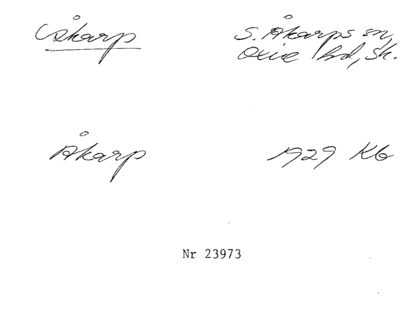 Åkarp
S. Åkarps sn,
Oxie hd, Sk.
Åkarp
1929 Kb
Nr 23973